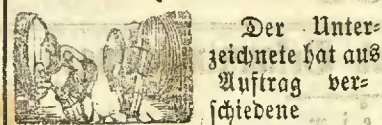 Der Unter=
zeichnete hat aus
Auftrag ver=
schiedene